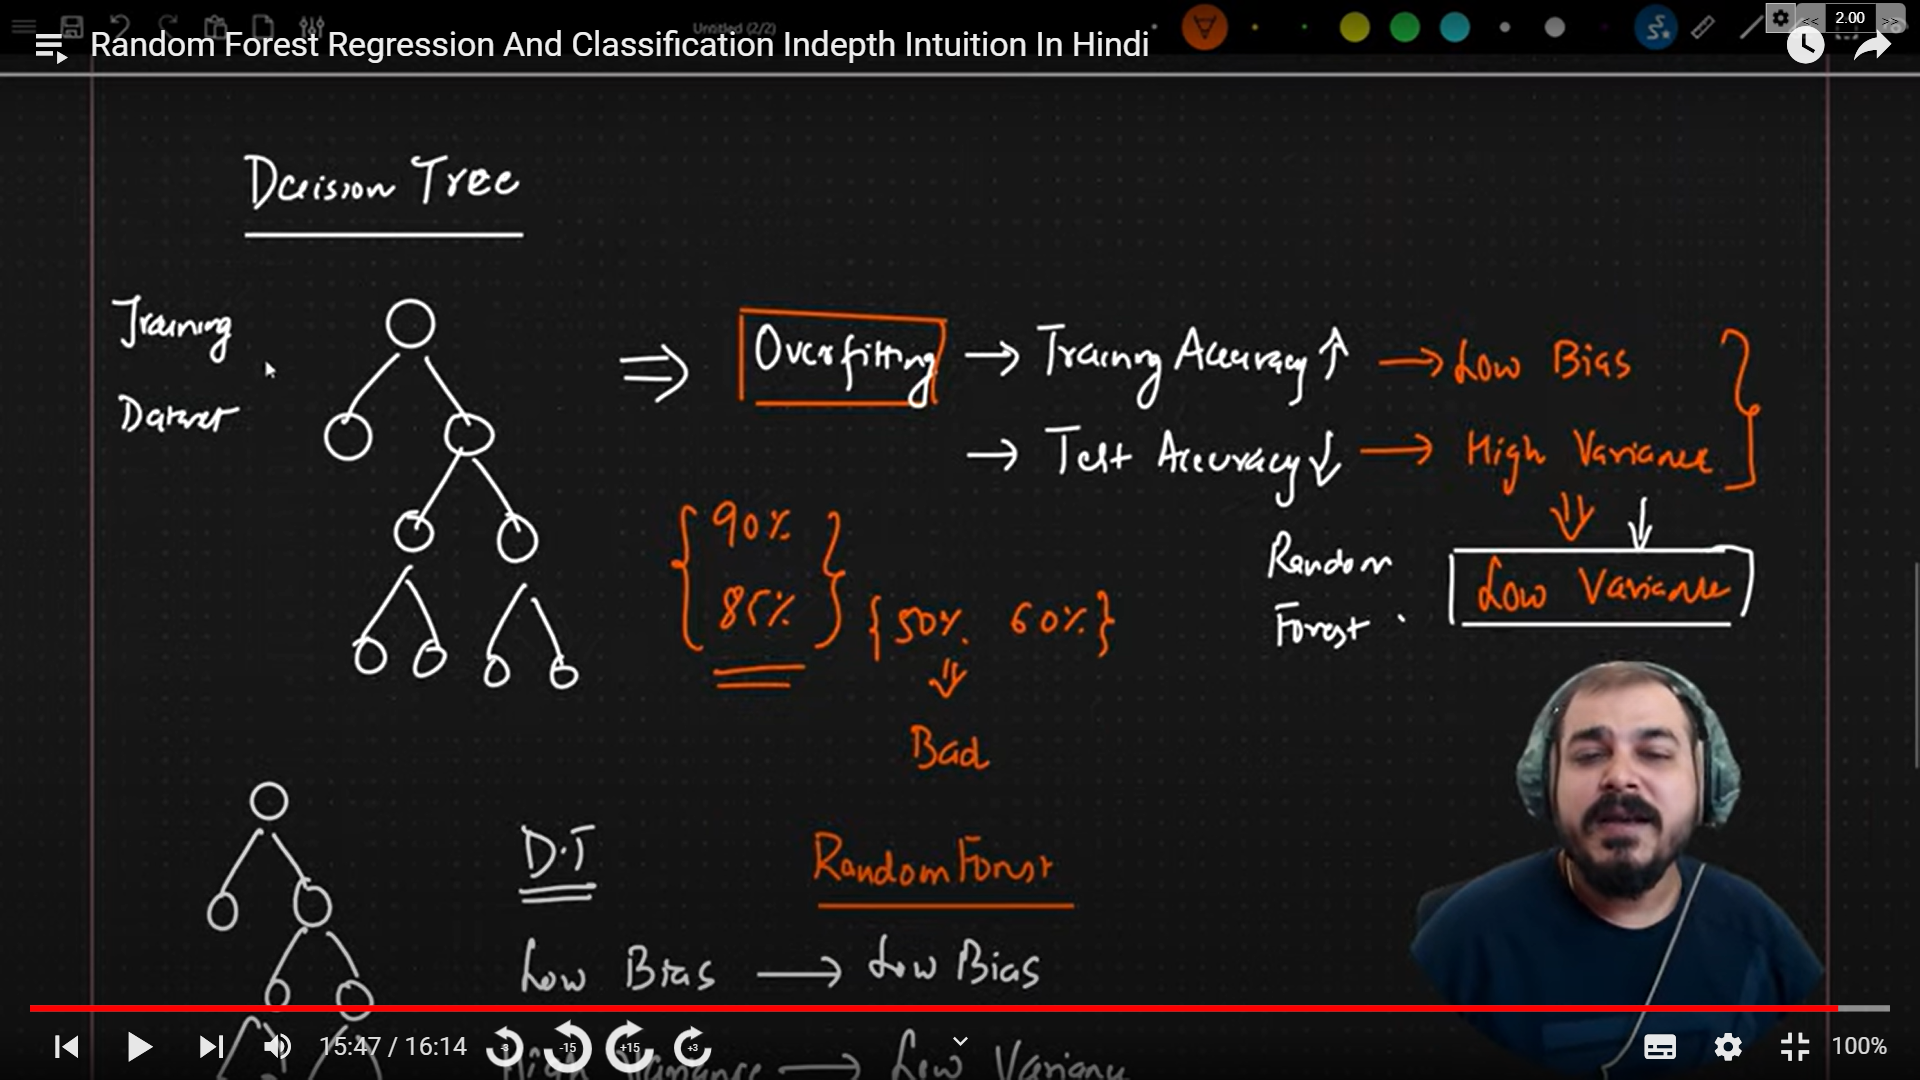 Untitled (2/2)
<< 2.00 >>
Random Forest Regression And Classification Indepth Intuition In Hindi
Decision Tree
Training
Dataset
⇒ Overfitting → Training Accuracy ↑ → Low Bias
→ Test Accuracy ↓ → High Variance
{ 90%
85% }
{50% 60%}
Bad
Random
Forest
Low Variance
D.T
Random Forest
Low Bias → Low Bias
High Variance → Low Variance
15:47 / 16:14
-3
-15
+15
+3
100%